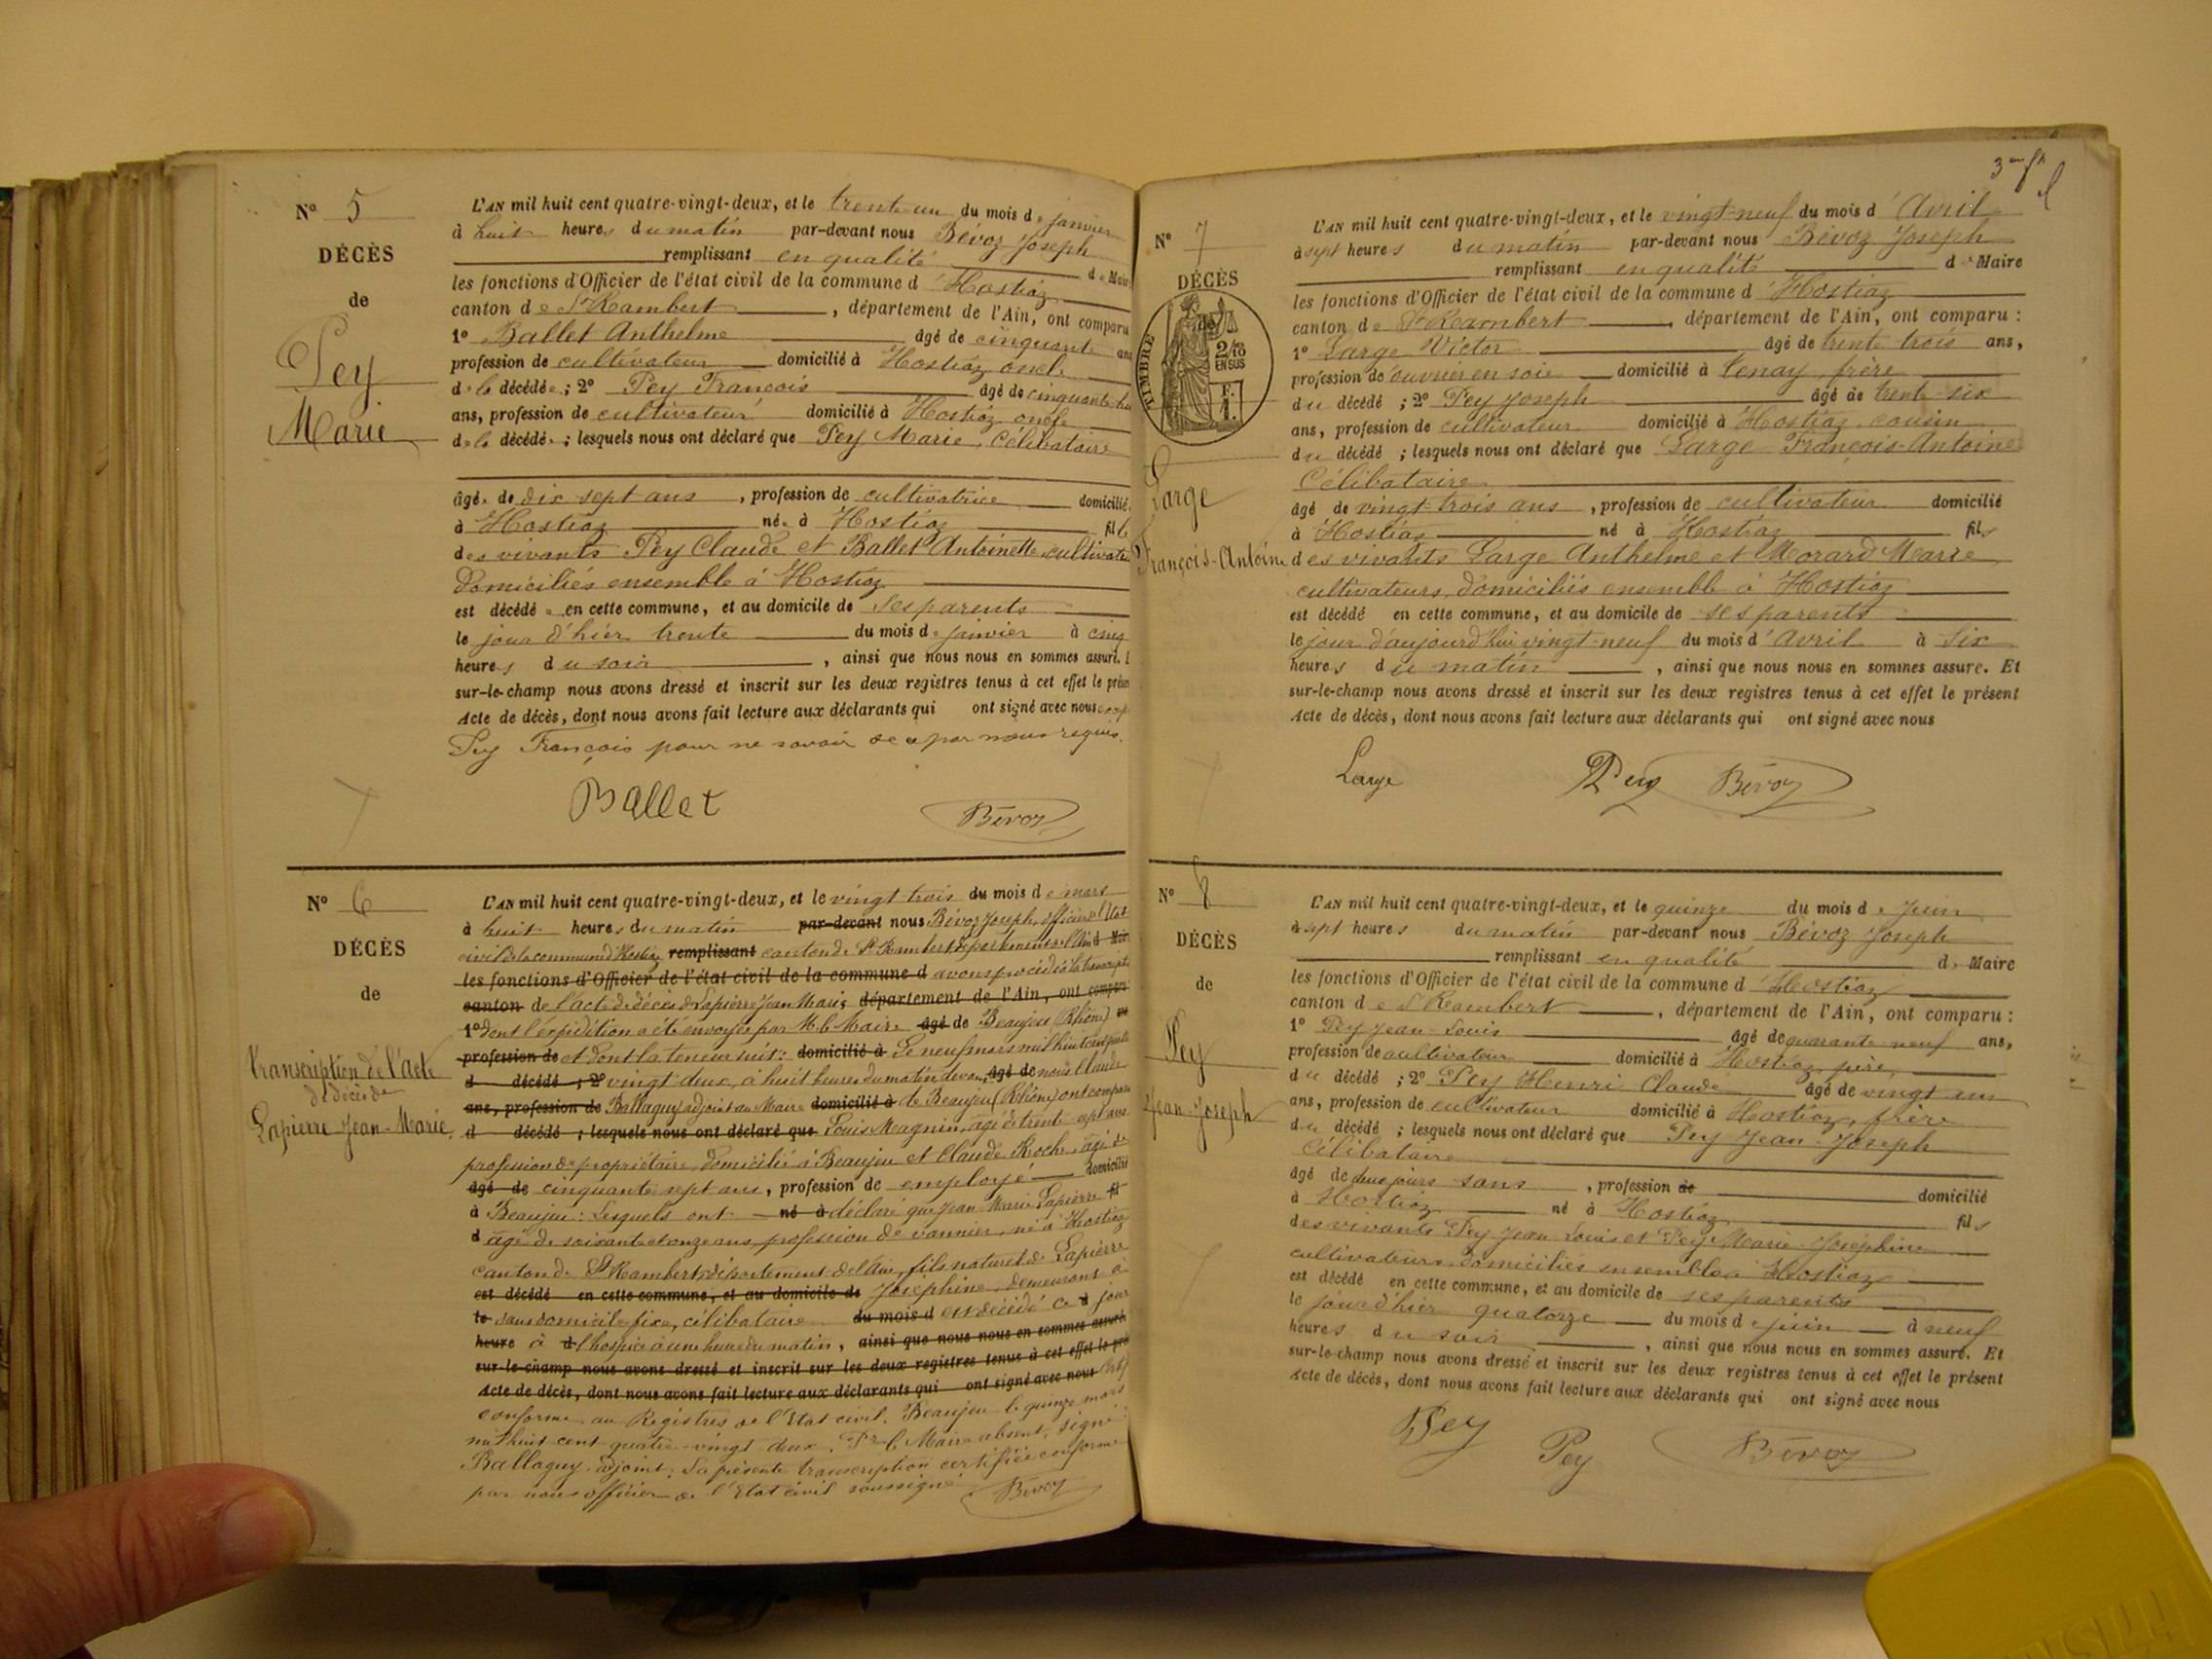 N° 5
DÉCÈS
de
Pey
Marie
L'AN mil huit cent quatre-vingt-deux, et le trente un du mois de janvier
à huit heures du matin par-devant nous Bévoz Joseph
remplissant en qualité de Maire
les fonctions d'Officier de l'état civil de la commune d'Hostiaz
canton de St Rambert, département de l'Ain, ont comparu
1° Ballet Anthelme âgé de cinquante ans
profession de cultivateur domicilié à Hostiaz oncle
de la décédée ; 2° Pey François âgé de cinquante
ans, profession de cultivateur domicilié à Hostiaz oncle
de la décédée ; lesquels nous ont déclaré que Pey Marie, Célibataire
âgée de dix sept ans, profession de cultivatrice domicilié
à Hostiaz née à Hostiaz fille
des vivants Pey Claude et Ballet Antoinette cultivate
Domiciliés ensemble à Hostiaz
est décédée en cette commune, et au domicile de ses parents
le jour d'hier trente du mois de janvier à cinq
heures du soir, ainsi que nous nous en sommes assuré.
sur-le-champ nous avons dressé et inscrit sur les deux registres tenus à cet effet le prése
Acte de décès, dont nous avons fait lecture aux déclarants qui ont signé avec nous
Pey François pour ne savoir de ce par nous requis.
Ballet Bévoz
N° 6
DÉCÈS
de
Transcription de l'acte
de décès de
Lapierre Jean-Marie
L'AN mil huit cent quatre-vingt-deux, et le vingt trois du mois de mars
à huit heures du matin par-devant nous Bévoz Joseph, officier de l'Etat
civil de la commune d'Hostiaz remplissant canton de St Rambert département de l'Ain d Mair
les fonctions d'Officier de l'état civil de la commune d avons procédé à la transcripti
canton de l'acte de décès de Lapierre Jean Marie département de l'Ain, ont comparu
1° dont l'expédition a été envoyée par M. le Maire âgé de Beaujeu (Rhône)
profession de et dont la teneur suit : domicilié à Le neuf mars mil huit cent quatre
d décédé ; 2° vingt deux, à huit heures du matin devant âgé de nous Claude
ans, profession de Ballaguy adjoint au Maire domicilié à de Beaujeu (Rhône) ont comparu
d décédé ; lesquels nous ont déclaré que Louis Magnin, âgé de trente sept ans
profession de propriétaire, domicilié à Beaujeu et Claude Roche, âgé de
âgé de cinquante sept ans, profession de employé domicilié
à Beaujeu : Lesquels ont né à déclaré que Jean Marie Lapierre fil
d âgé de soixante et onze ans, profession de vannier, né à Hostiaz
canton de St Rambert, département de l'Ain, fils naturel de Lapierre
est décédé en cette commune, et au domicile de Joséphine, demeurant à
le sans domicile fixe, célibataire du mois d est décédé ce à jour
heure à d l'hospice à une heure du matin, ainsi que nous nous en sommes assuré
sur-le-champ nous avons dressé et inscrit sur les deux registres tenus à cet effet le pré
Acte de décès, dont nous avons fait lecture aux déclarants qui ont signé avec nous
conforme au Registres de l'Etat civil. Beaujeu le quinze mars
mil huit cent quatre-vingt deux. Pr le Maire absent, signé
Ballaguy, adjoint. La présente transcription certifiée conforme
par nous officier de l'Etat civil soussigné Bévoz
3me ft
N° 7
DÉCÈS
de
TIMBRE
2/10
EN SUS
F.
1.
Large
François-Antoine
L'AN mil huit cent quatre-vingt-deux, et le vingt-neuf du mois d'Avril
à sept heures du matin par-devant nous Bévoz Joseph
remplissant en qualité de Maire
les fonctions d'Officier de l'état civil de la commune d'Hostiaz
canton de St Rambert, département de l'Ain, ont comparu :
1° Large Victor âgé de trente trois ans,
profession de ouvrier en soie domicilié à Tenay, frère
du décédé ; 2° Pey Joseph âgé de trente six
ans, profession de cultivateur domicilié à Hostiaz, cousin
du décédé ; lesquels nous ont déclaré que Large François-Antoine
Célibataire
âgé de vingt-trois ans, profession de cultivateur domicilié
à Hostiaz né à Hostiaz fils
des vivants Large Anthelme et Morard Marie
cultivateurs, domiciliés ensemble à Hostiaz
est décédé en cette commune, et au domicile de ses parents
le jour d'aujourd'hui vingt-neuf du mois d'Avril à six
heures du matin, ainsi que nous nous en sommes assuré. Et
sur-le-champ nous avons dressé et inscrit sur les deux registres tenus à cet effet le présent
Acte de décès, dont nous avons fait lecture aux déclarants qui ont signé avec nous
Large Pey Bévoz
N° 8
DÉCÈS
de
Pey
Jean-Joseph
L'AN mil huit cent quatre-vingt-deux, et le quinze du mois de Juin
à sept heures du matin par-devant nous Bévoz Joseph
remplissant en qualité de Maire
les fonctions d'Officier de l'état civil de la commune d'Hostiaz
canton de St Rambert, département de l'Ain, ont comparu :
1° Pey Jean-Louis âgé de quarante neuf ans,
profession de cultivateur domicilié à Hostiaz, père,
du décédé ; 2° Pey Henri Claude âgé de vingt un
ans, profession de cultivateur domicilié à Hostiaz, frère
du décédé ; lesquels nous ont déclaré que Pey Jean-Joseph
Célibataire
âgé de deux jours sans, profession de domicilié
à Hostiaz né à Hostiaz fils
des vivants Pey Jean Louis et Pey Marie-Joséphine
cultivateurs domiciliés ensemble à Hostiaz
est décédé en cette commune, et au domicile de ses parents
le jour d'hier quatorze du mois de juin à neuf
heures du soir, ainsi que nous nous en sommes assuré. Et
sur-le-champ nous avons dressé et inscrit sur les deux registres tenus à cet effet le présent
Acte de décès, dont nous avons fait lecture aux déclarants qui ont signé avec nous
Pey Pey Bévoz